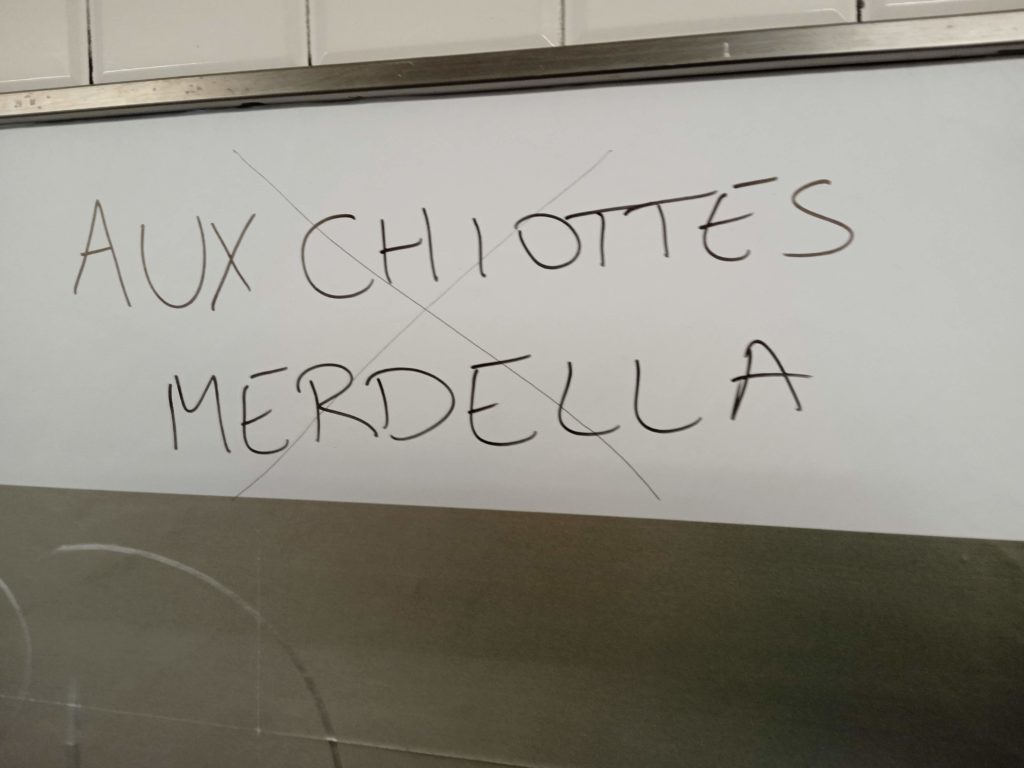 AUX CHIOTTES
MERDELLA